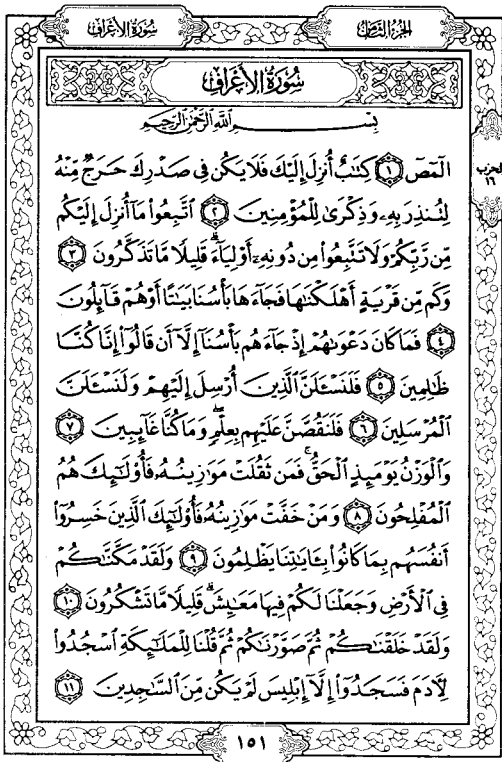 سُورَةُ الأَعْرَافِ
الجُزْءُ الثَّامِنُ
سُورَةُ الأَعْرَافِ
بِسْمِ ٱللَّهِ ٱلرَّحْمَٰنِ ٱلرَّحِيمِ
الٓمٓصٓ ١ كِتَٰبٌ أُنزِلَ إِلَيْكَ فَلَا يَكُن فِى صَدْرِكَ حَرَجٌ مِّنْهُ
الحزب ١٦
لِتُنذِرَ بِهِۦ وَذِكْرَىٰ لِلْمُؤْمِنِينَ ٢ ٱتَّبِعُوا۟ مَآ أُنزِلَ إِلَيْكُم
مِّن رَّبِّكُمْ وَلَا تَتَّبِعُوا۟ مِن دُونِهِۦٓ أَوْلِيَآءَ ۗ قَلِيلًا مَّا تَذَكَّرُونَ ٣
وَكَم مِّن قَرْيَةٍ أَهْلَكْنَٰهَا فَجَآءَهَا بَأْسُنَا بَيَٰتًا أَوْ هُمْ قَآئِلُونَ
٤ فَمَا كَانَ دَعْوَىٰهُمْ إِذْ جَآءَهُم بَأْسُنَآ إِلَّآ أَن قَالُوٓا۟ إِنَّا كُنَّا
ظَٰلِمِينَ ٥ فَلَنَسْـَٔلَنَّ ٱلَّذِينَ أُرْسِلَ إِلَيْهِمْ وَلَنَسْـَٔلَنَّ
ٱلْمُرْسَلِينَ ٦ فَلَنَقُصَّنَّ عَلَيْهِم بِعِلْمٍ ۖ وَمَا كُنَّا غَآئِبِينَ ٧
وَٱلْوَزْنُ يَوْمَئِذٍ ٱلْحَقُّ ۚ فَمَن ثَقُلَتْ مَوَٰزِينُهُۥ فَأُو۟لَٰٓئِكَ هُمُ
ٱلْمُفْلِحُونَ ٨ وَمَنْ خَفَّتْ مَوَٰزِينُهُۥ فَأُو۟لَٰٓئِكَ ٱلَّذِينَ خَسِرُوٓا۟
أَنفُسَهُم بِمَا كَانُوا۟ بِـَٔايَٰتِنَا يَظْلِمُونَ ٩ وَلَقَدْ مَكَّنَّٰكُمْ
فِى ٱلْأَرْضِ وَجَعَلْنَا لَكُمْ فِيهَا مَعَٰيِشَ ۗ قَلِيلًا مَّا تَشْكُرُونَ ١٠
وَلَقَدْ خَلَقْنَٰكُمْ ثُمَّ صَوَّرْنَٰكُمْ ثُمَّ قُلْنَا لِلْمَلَٰٓئِكَةِ ٱسْجُدُوا۟
لِـَٔادَمَ فَسَجَدُوٓا۟ إِلَّآ إِبْلِيسَ لَمْ يَكُن مِّنَ ٱلسَّٰجِدِينَ ١١
١٥١